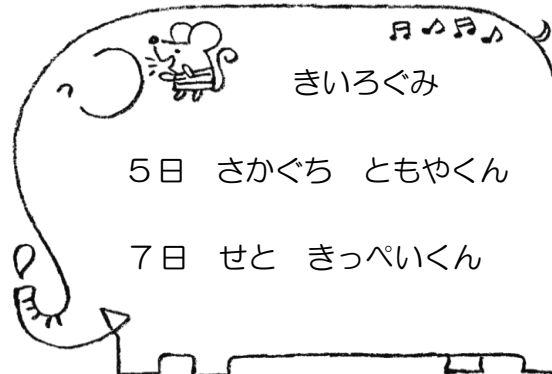 きいろぐみ
５日　さかぐち　ともやくん
７日　せと　きっぺいくん